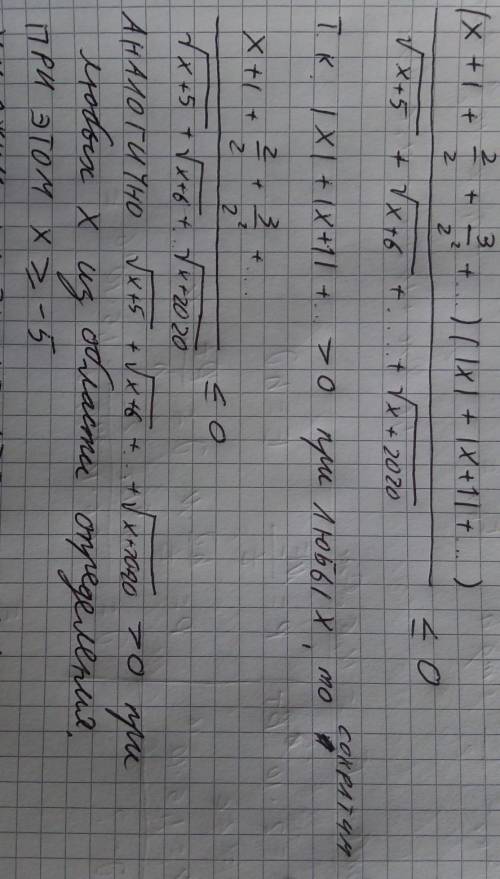 (x + 1 + 2/2 + 3/2² + ...) (|x| + |x+1| + ...)
√x+5 + √x+6 + ... + √x+2020 ≤ 0
Т.к. |x| + |x+1| + ... > 0 при любых х, то сократим
x+1 + 2/2 + 3/2² + ...
√x+5 + √x+6 + ... √x+2020 ≤ 0
Аналогично √x+5 + √x+6 + ... + √x+2020 > 0 при
любых х из области определения.
При этом x ≥ -5